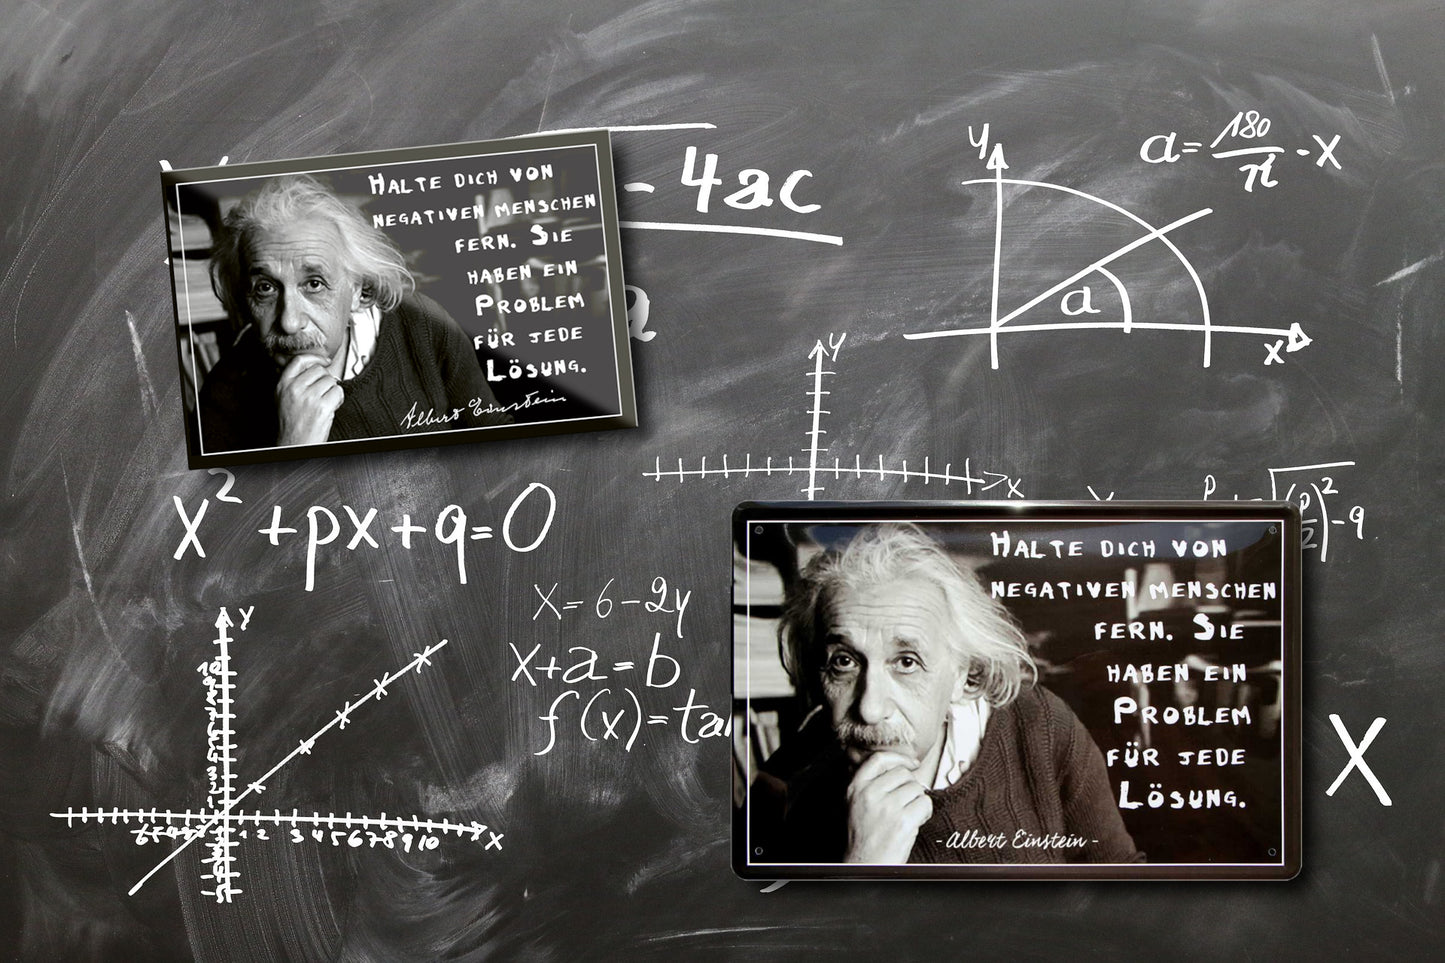 - 4ac
a
HALTE DICH VON
NEGATIVEN MENSCHEN
FERN. SIE
HABEN EIN
PROBLEM
FÜR JEDE
LÖSUNG.
Albert Einstein
y
a = 180/π - x
a
x
y
x
x² + px + q = 0
x = 6 - 2y
x + a = b
f(x) = tan
y
10
1 2 3 4 5 6 7 8 9 10
x
HALTE DICH VON
NEGATIVEN MENSCHEN
FERN. SIE
HABEN EIN
PROBLEM
FÜR JEDE
LÖSUNG.
- Albert Einstein -
- q
X